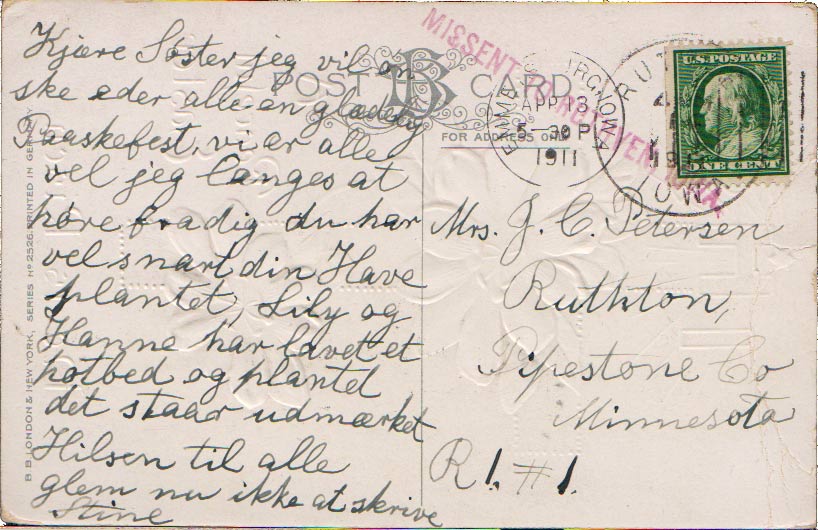 Kjære Søster jeg vil øn
ske eder alle en glædelig
Paaskefest, vi ar alle
vel jeg langes at
høre fra dig du har
vel snart din Have
plantet, Lily og
Hanne har lavet et
hotbed og plantet
det staar udmærket
Hilsen til alle
glem nu ikke at skrive
Stine
POST CARD
FOR ADDRESS ONLY
MISSENT TO IOWA.
APR 13
5-30 P
1911
RUT
IOW
U.S. POSTAGE
ONE CENT
Mrs. J. C. Petersen
Ruthton,
Pipestone Co
Minnesota
R 1. #1.
B B LONDON & NEW YORK, SERIES No 2526. PRINTED IN GERMANY